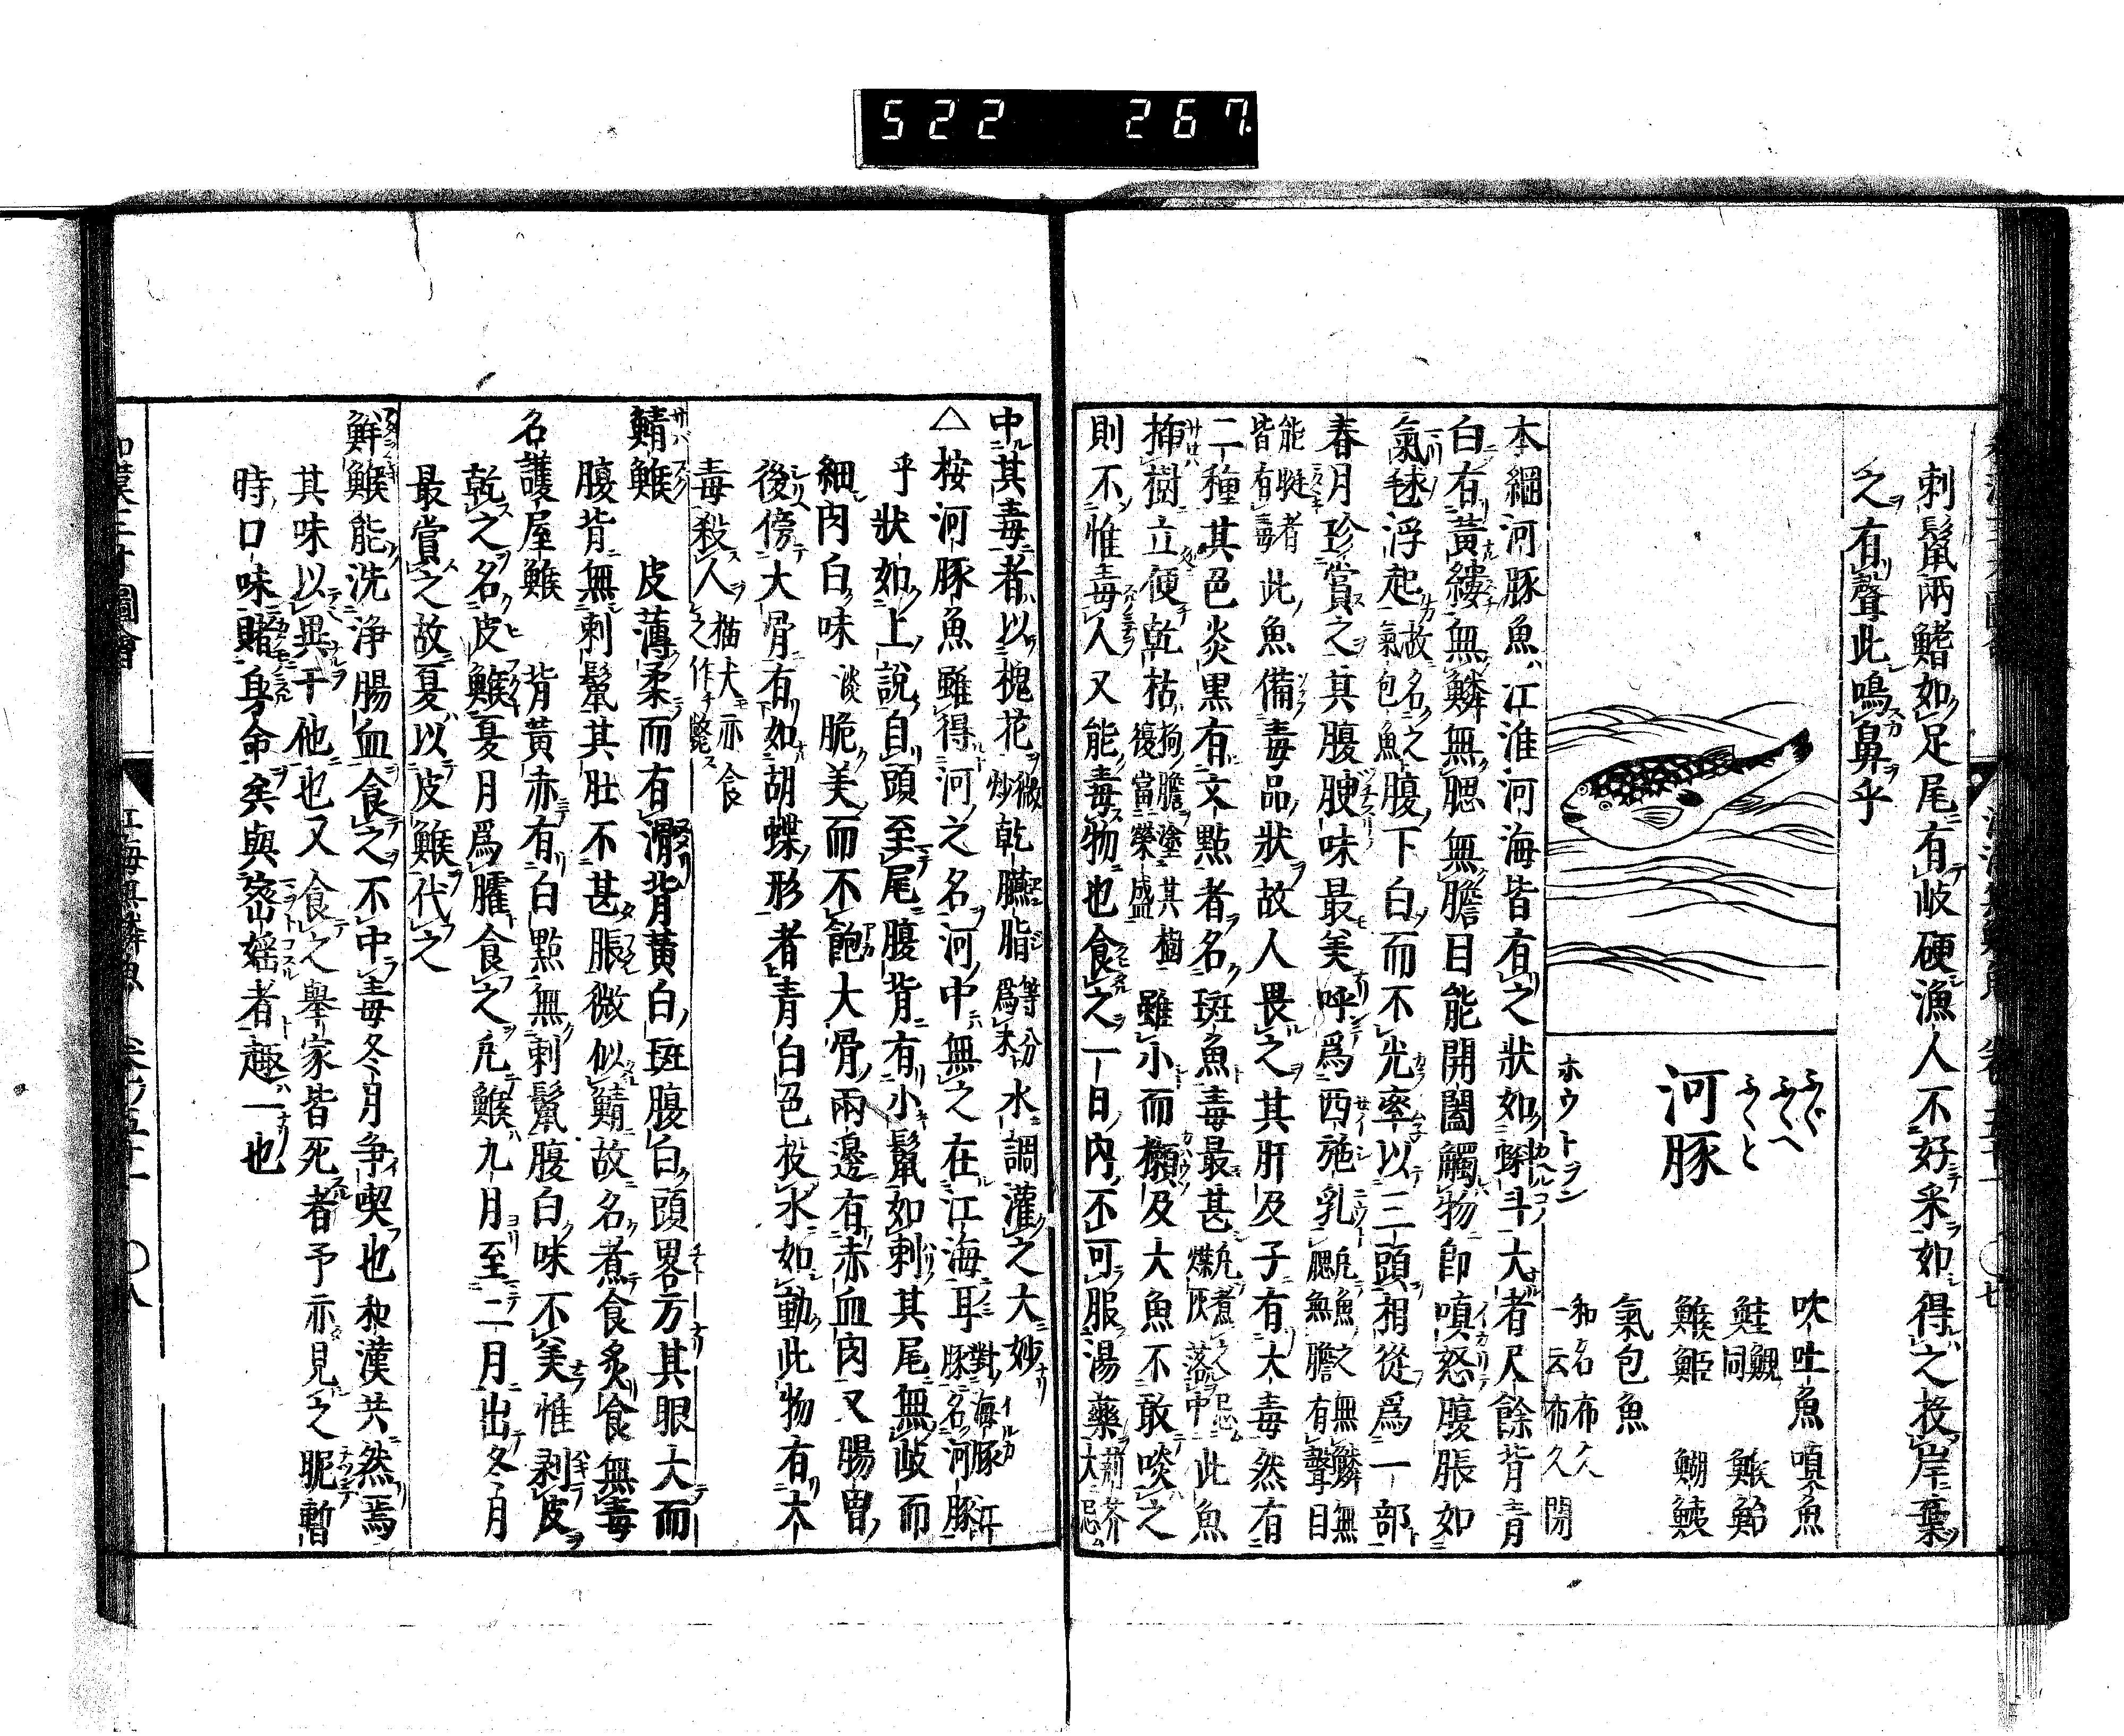 522 267
刺鬣兩鰭如足尾有岐硬漁人不好采如得之投岸棄
之有聲此鳴鼻乎
ふぐ
ふくへ
ふくと
河豚
ホウトラン
吹吐魚 嗔魚
鮭 鯢同 鯸鮐
鯸䱌 鰗鮧
氣包魚
和名布久
一云布久閉
本綱河豚魚江淮河海皆有之狀如蝌斗大者尺餘背青
白有黃縷無鱗無腮無膽目能開闔觸物卽嗔怒腹脹如
氣毬浮起故名之氣包魚腹下白而不光率以三頭相從爲一部
春月珍賞之其腹腴味最美呼爲西施乳凡魚之無鱗無腮無膽有聲目
能眨者皆有毒此魚備毒品狀故人畏之其肝及子有大毒然有
二種其色炎黒有文點者名斑魚毒最甚凡煮之忌煤灰落中此魚
插樹立便乾枯狗膽塗其樹復當榮盛雖小而獺及大魚不敢啖之
則不惟毒人又能毒物也食之一日內不可服湯藥荊芥大忌
中其毒者以槐花微炒乾臙脂等分爲末水調灌之大妙
△按河豚魚雖得河之名河中無之在江海耳對海豚名河豚耳
乎狀如上說自頭至尾腹背有小鬣如刺其尾無岐而
細肉白味淡脆美而不飽大骨兩邊有赤血肉又腸曽
後傍大骨有如胡蝶形者青白色投水如動此物有大
毒殺人猫犬亦食之作毙
鯖鯸 皮薄柔而有滑背黃白斑腹白頭畧方其眼大而
腹背無刺鬣其肚不甚脹微似鯖故名煮食炙食無毒
名護屋鯸 背黃赤有白點無刺鬣腹白味不美惟剥皮
乾之名皮鯸夏月爲臛食之凡鯸九月至二月出冬月
最賞之故夏以皮鯸代之
鮮鯸能洗浄腸血食之不中毒冬月争喫也和漢共然焉
其味以異于他也又食之舉家皆死者予亦見之眤暫
時口味賭身命矣與窃婬者趣一也